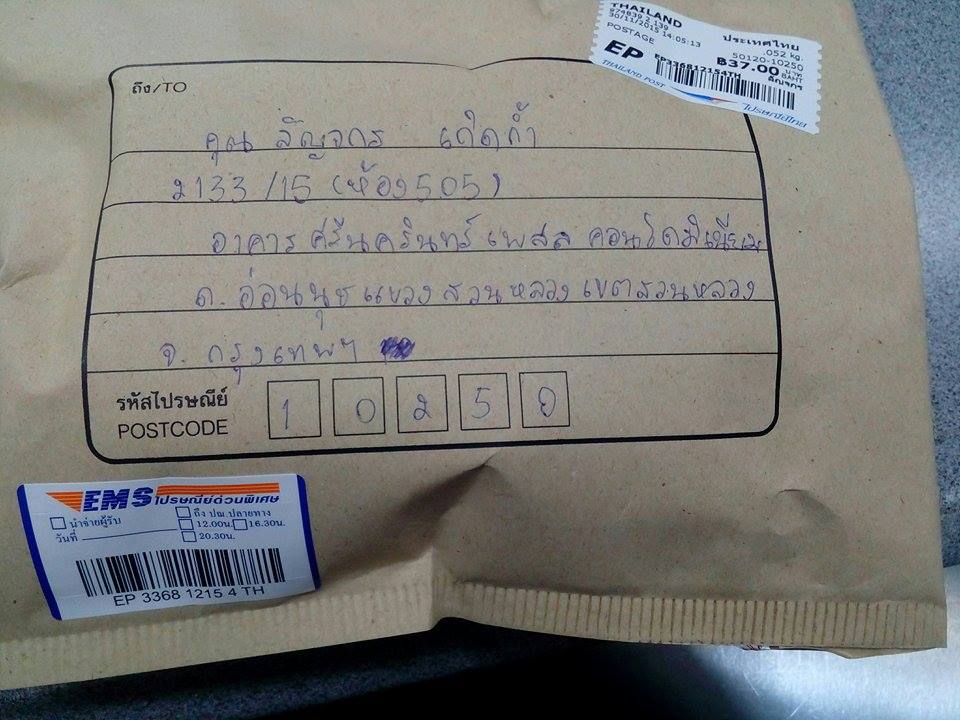 THAILAND
974839 2.139
30/11/2015 14:05:13
POSTAGE
ประเทศไทย
.052 kg.
50120-10250
EP
฿37.00 บาท BAHT
EP336812154TH
THAILAND POST
ไปรษณีย์ไทย
ถึง/TO
คุณ สัญจกร เกิดก่ำ
2133/15 (ห้อง505)
อาคาร ศรีนครินทร์ เพสล คอนโดมิเนียม
ถ. อ่อนนุช แขวง สวนหลวง เขตสวนหลวง
จ. กรุงเทพฯ
รหัสไปรษณีย์
POSTCODE
1 0 2 5 0
EMS ไปรษณีย์ด่วนพิเศษ
นำจ่ายผู้รับ ถึง ปณ.ปลายทาง
วันที่ 12.00น. 16.30น.
20.30น.
EP 3368 1215 4 TH